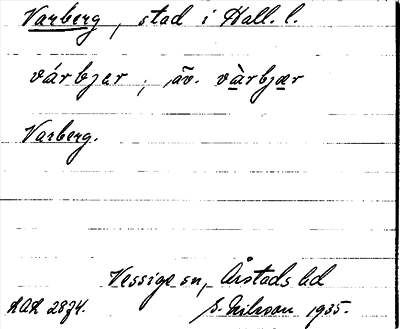 Varberg, stad i Hall. l.
várbjer, äv. vàrbjær
Varberg.
Vessige sn, Årstads hd
AAA 2874. S. Nilsson 1935.